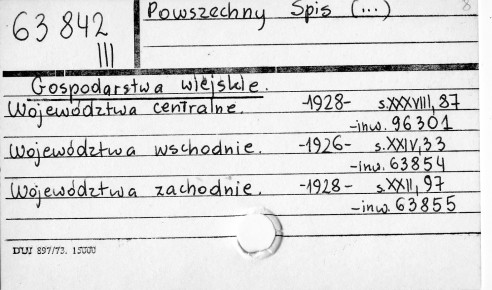 63 842
III
Powszechny Spis (...)
8
Gospodarstwa wiejskie.
Województwa centralne. -1928- s.XXXVIII, 87
-inw. 96301
Województwa wschodnie. -1926- s.XXIV, 33
-inw. 63854
Województwa zachodnie. -1928- s.XXII, 97
-inw. 63855
DUJ 897/73. 15000